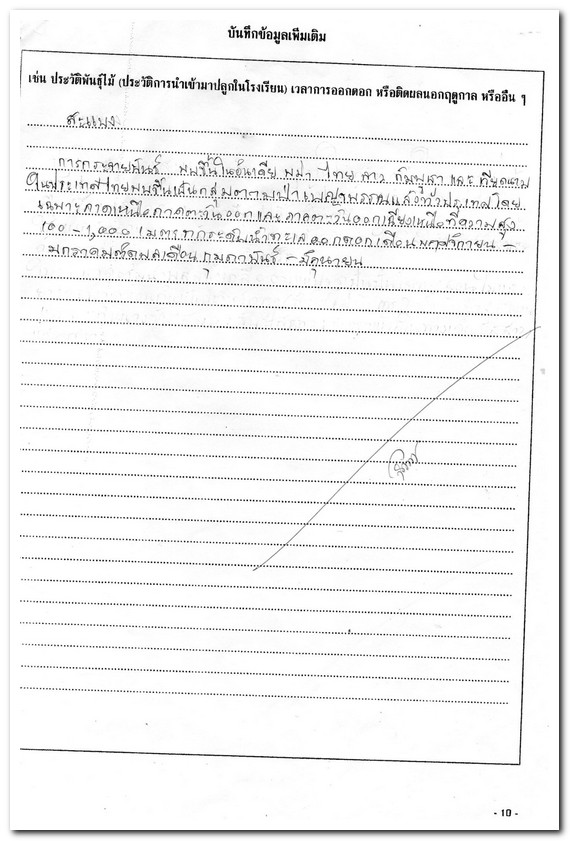 บันทึกข้อมูลเพิ่มเติม
เช่น ประวัติพันธุ์ไม้ (ประวัติการนำเข้ามาปลูกในโรงเรียน) เวลาการออกดอก หรือติดผลนอกฤดูกาล หรืออื่น ๆ
สะแบง
การกระจายพันธุ์ พบขึ้นในอินเดีย พม่า ไทย ลาว กัมพูชา และ เวียดนาม
ในประเทศไทยพบขึ้นเป็นกลุ่มตามป่าเบญจพรรณแล้งทั่วประเทศโดย
เฉพาะภาคเหนือภาคตะวันออกและภาคตะวันออกเฉียงเหนือที่ความสูง
100 - 1,000 เมตร จากระดับน้ำทะเล ออกดอกเดือนพฤศจิกายน -
มกราคม ติดผลเดือน กุมภาพันธ์ - มิถุนายน
- 10 -